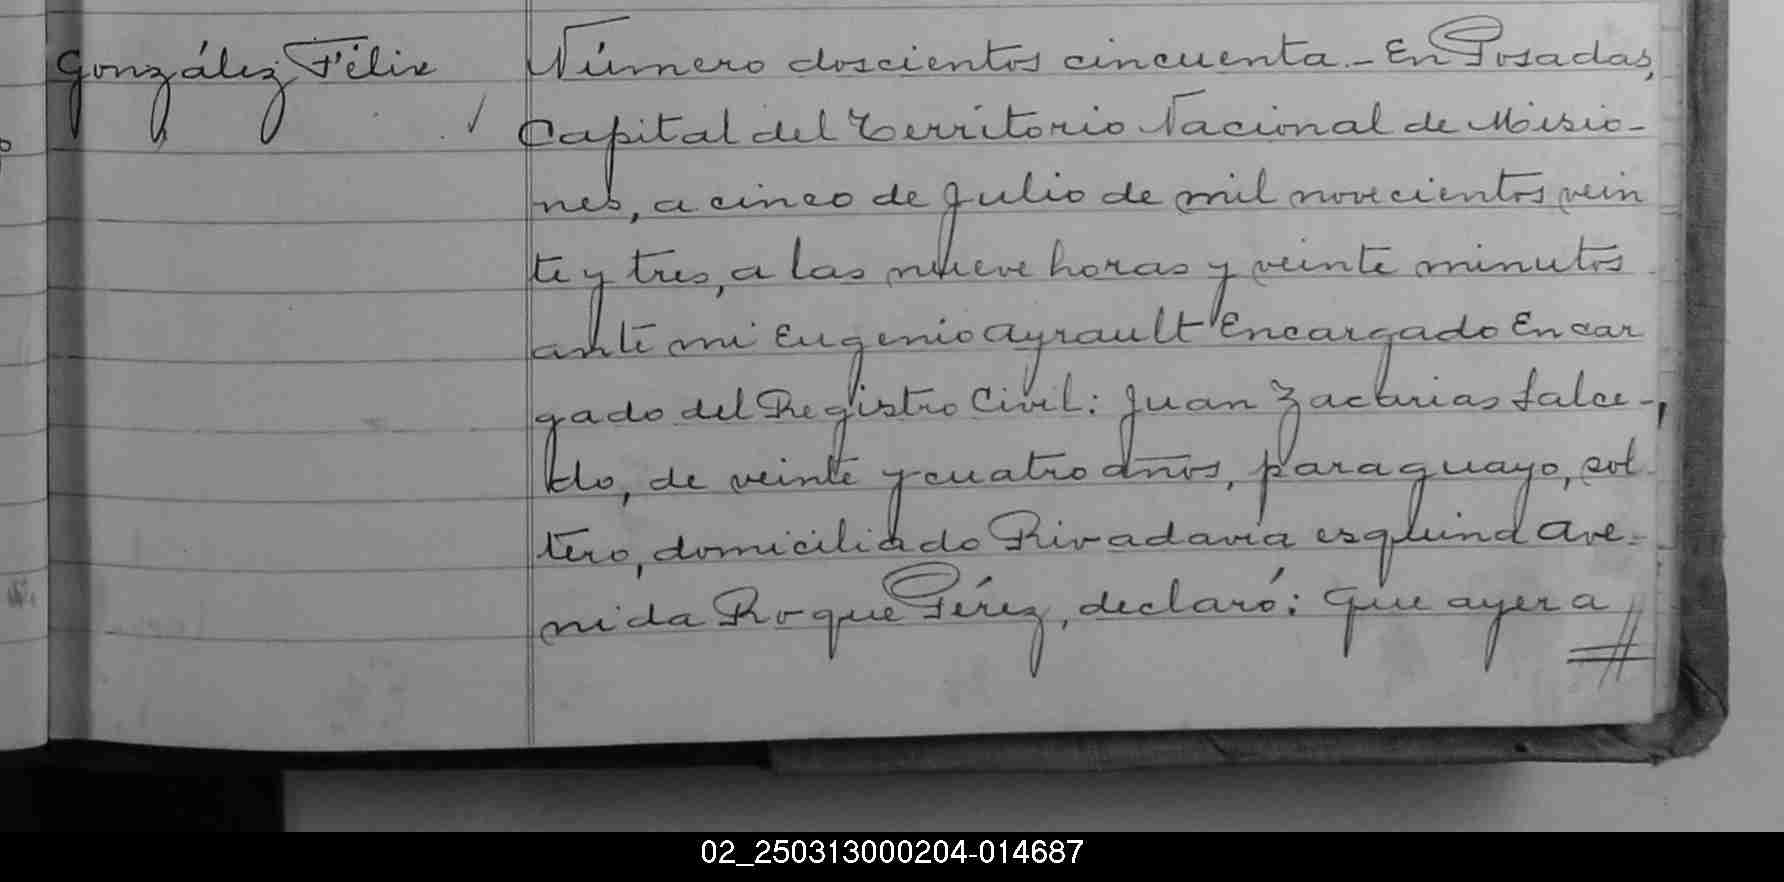 González, Félix
Número doscientos cincuenta.- En Posadas,
Capital del Territorio Nacional de Misio-
nes, a cinco de Julio de mil novecientos vein
te y tres, a las nueve horas y veinte minutos
ante mi Eugenio Ayrault Encargado Encar
gado del Registro Civil: Juan Zacarias Salce-
do, de veinte y cuatro años, paraguayo, sol
tero, domiciliado Rivadavia esquina Ave-
nida Roque Pérez, declaró: Que ayer a
02_250313000204-014687